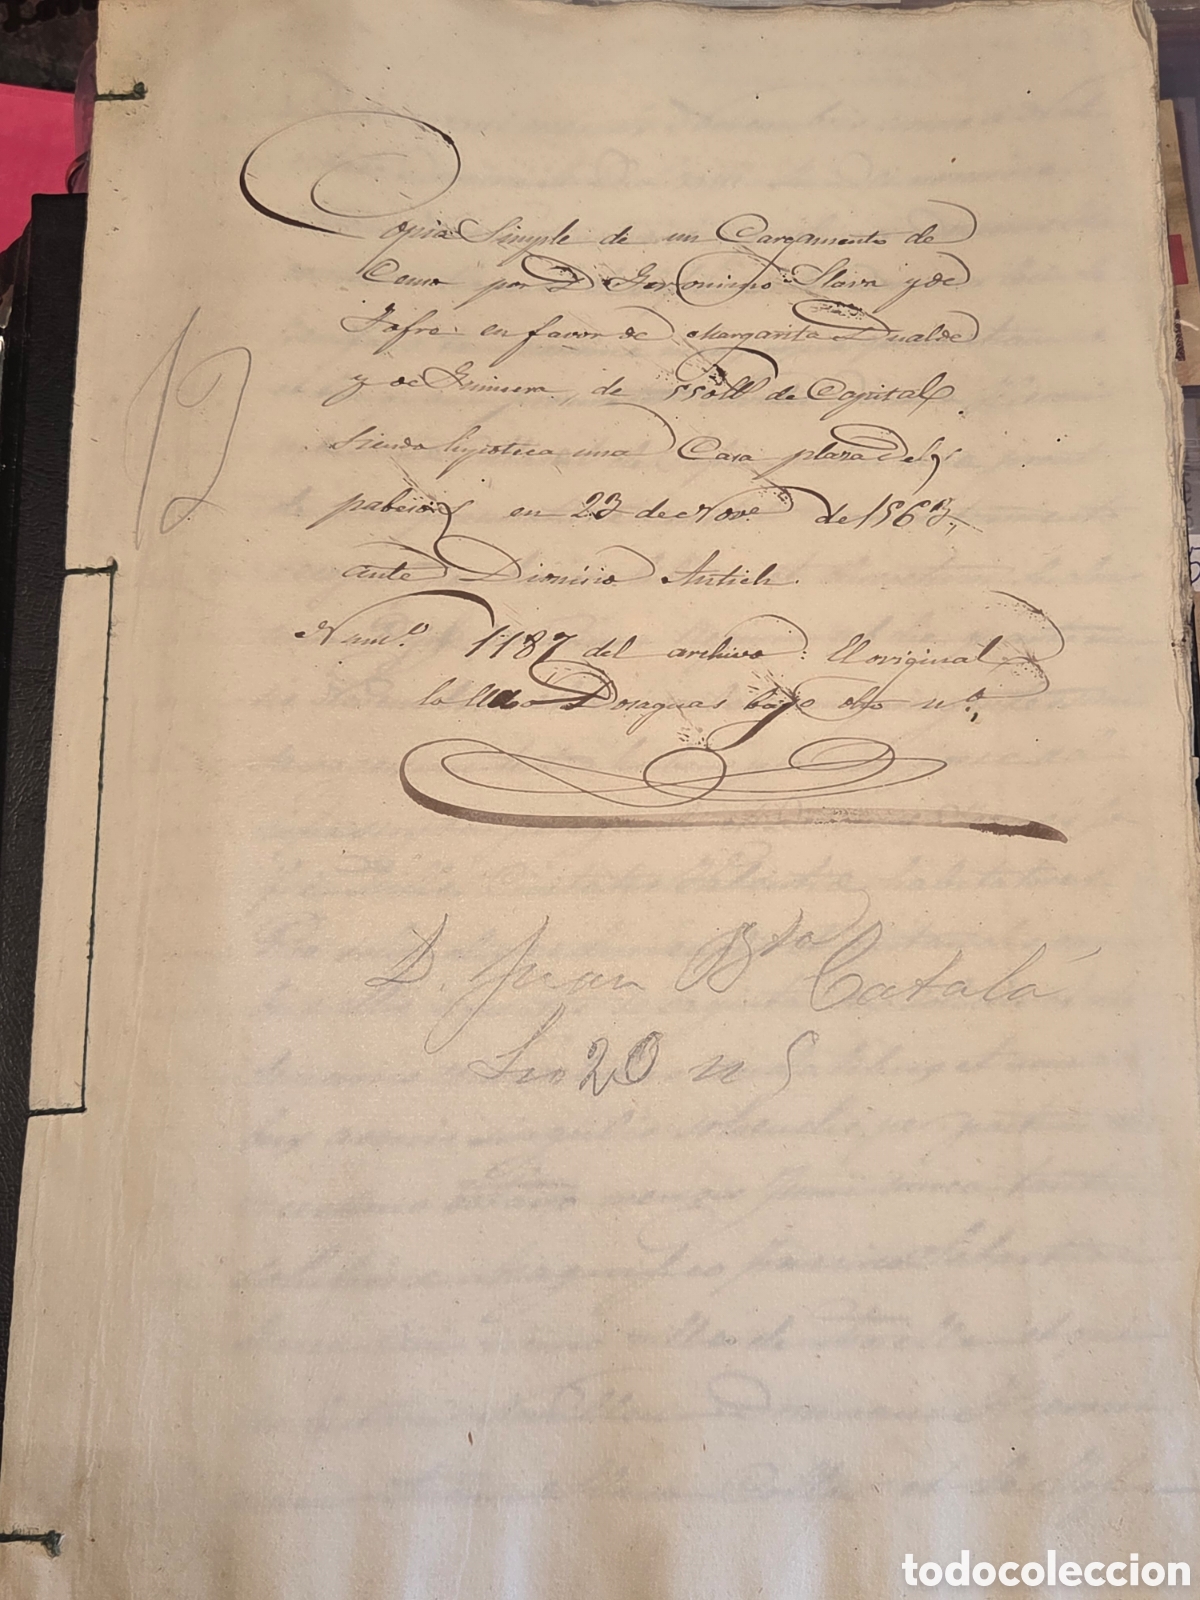 Copia Simple de un Cargamento de
Censo por D. Geronimo Slava y de
Jofre en favor de Margarita Dualde
y de Guimera, de 550 ll de Capital
siendo hipoteca una Casa plaza del
en 23 de Nove de 1563,
ante Dionisio Antich.
Numo. 1187 del archivo: El original
lo llebo Dosaguas bajo otro no.,
12
D. Juan Bta Catalá
20 n 5
todocoleccion